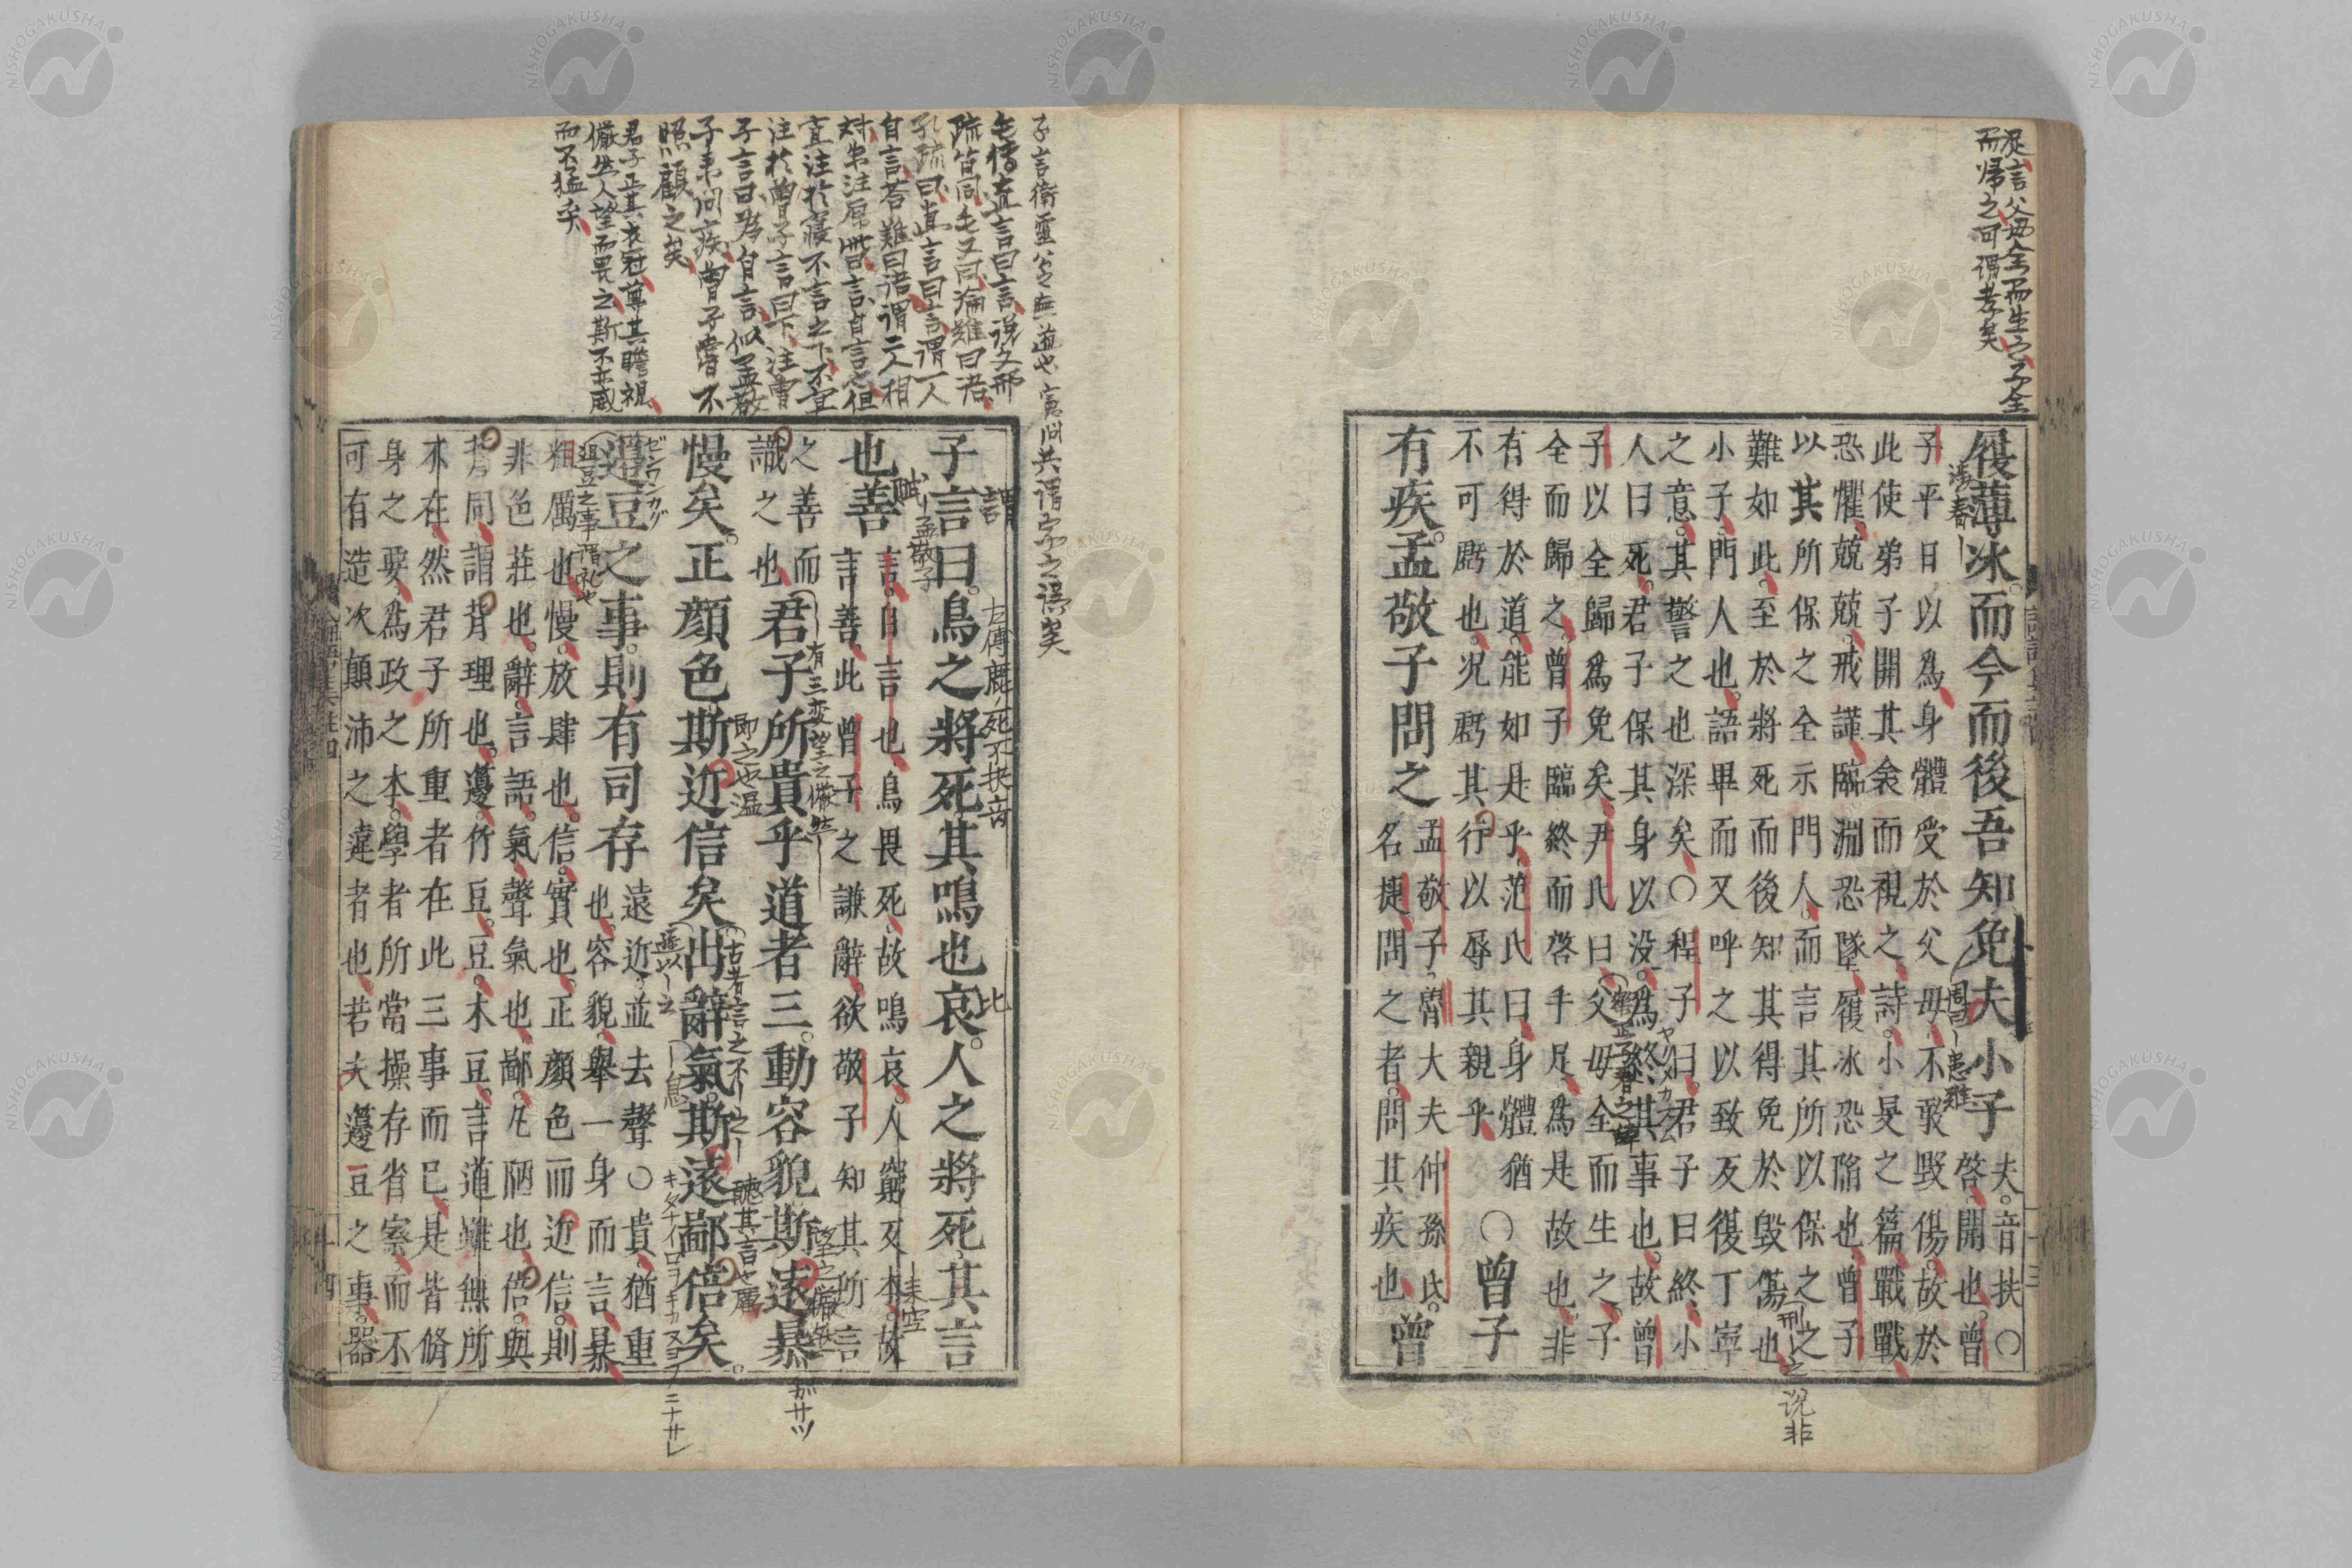 履薄冰。而今而後吾知免夫小子
夫。音扶○
啓。開也。曾
子平日以爲身體受於父母。不敢毀傷。故於
此使弟子開其衾而視之。詩。小旻之篇。戰戰
恐懼。兢兢。戒謹。臨淵恐墜。履冰恐陷也。曾子
以其所保之全示門人。而言其所以保之之
難如此。至於將死而後知其得免於毀傷也
小子。門人也。語畢而又呼之以致反復丁寧
之意。其警之也深矣。○程子曰。君子曰終。小
人曰死。君子保其身以没。爲終其事也。故曾
子以全歸爲免矣。尹氏曰。父母全而生之。子
全而歸之。曾子臨終而啓手足。爲是故也。非
有得於道。能如是乎。范氏曰。身體猶
不可虧也。况虧其行以辱其親乎
○曾子
有疾。孟敬子問之
孟敬子。魯大夫仲孫氏。
名捷。問之者。問其疾也
曾
子言曰。鳥之將死其鳴也哀。人之將死其言
也善
言。自言也。鳥畏死。故鳴哀。人窮反本。故
言善。此曾子之謙辭。欲敬子知其所言
之善而
識之也
君子所貴乎道者三。動容貌斯遠暴
慢矣。正顏色斯近信矣出辭氣斯遠鄙倍矣。
籩豆之事。則有司存
遠近。並去聲○貴。猶重
也。容貌。舉一身而言。暴
粗厲也。慢。放肆也。信。實也。正顏色而近信。則
非色莊也。辭。言語。氣。聲氣也。鄙。凡陋也。倍。與
背同。謂背理也。籩。竹豆。豆。木豆。言道雖無所
不在。然君子所重者在此三事而已。是皆脩
身之要。爲政之本。學者所當操存省察。而不
可有造次顛沛之違者也。若夫籩豆之事。器
而歸之可謂孝矣
子言衛靈公之無道也
君子正其衣冠尊其瞻視
儼然人望而畏之斯不亦威
而不猛矣
照顧之矣
NISHOGAKUSHA